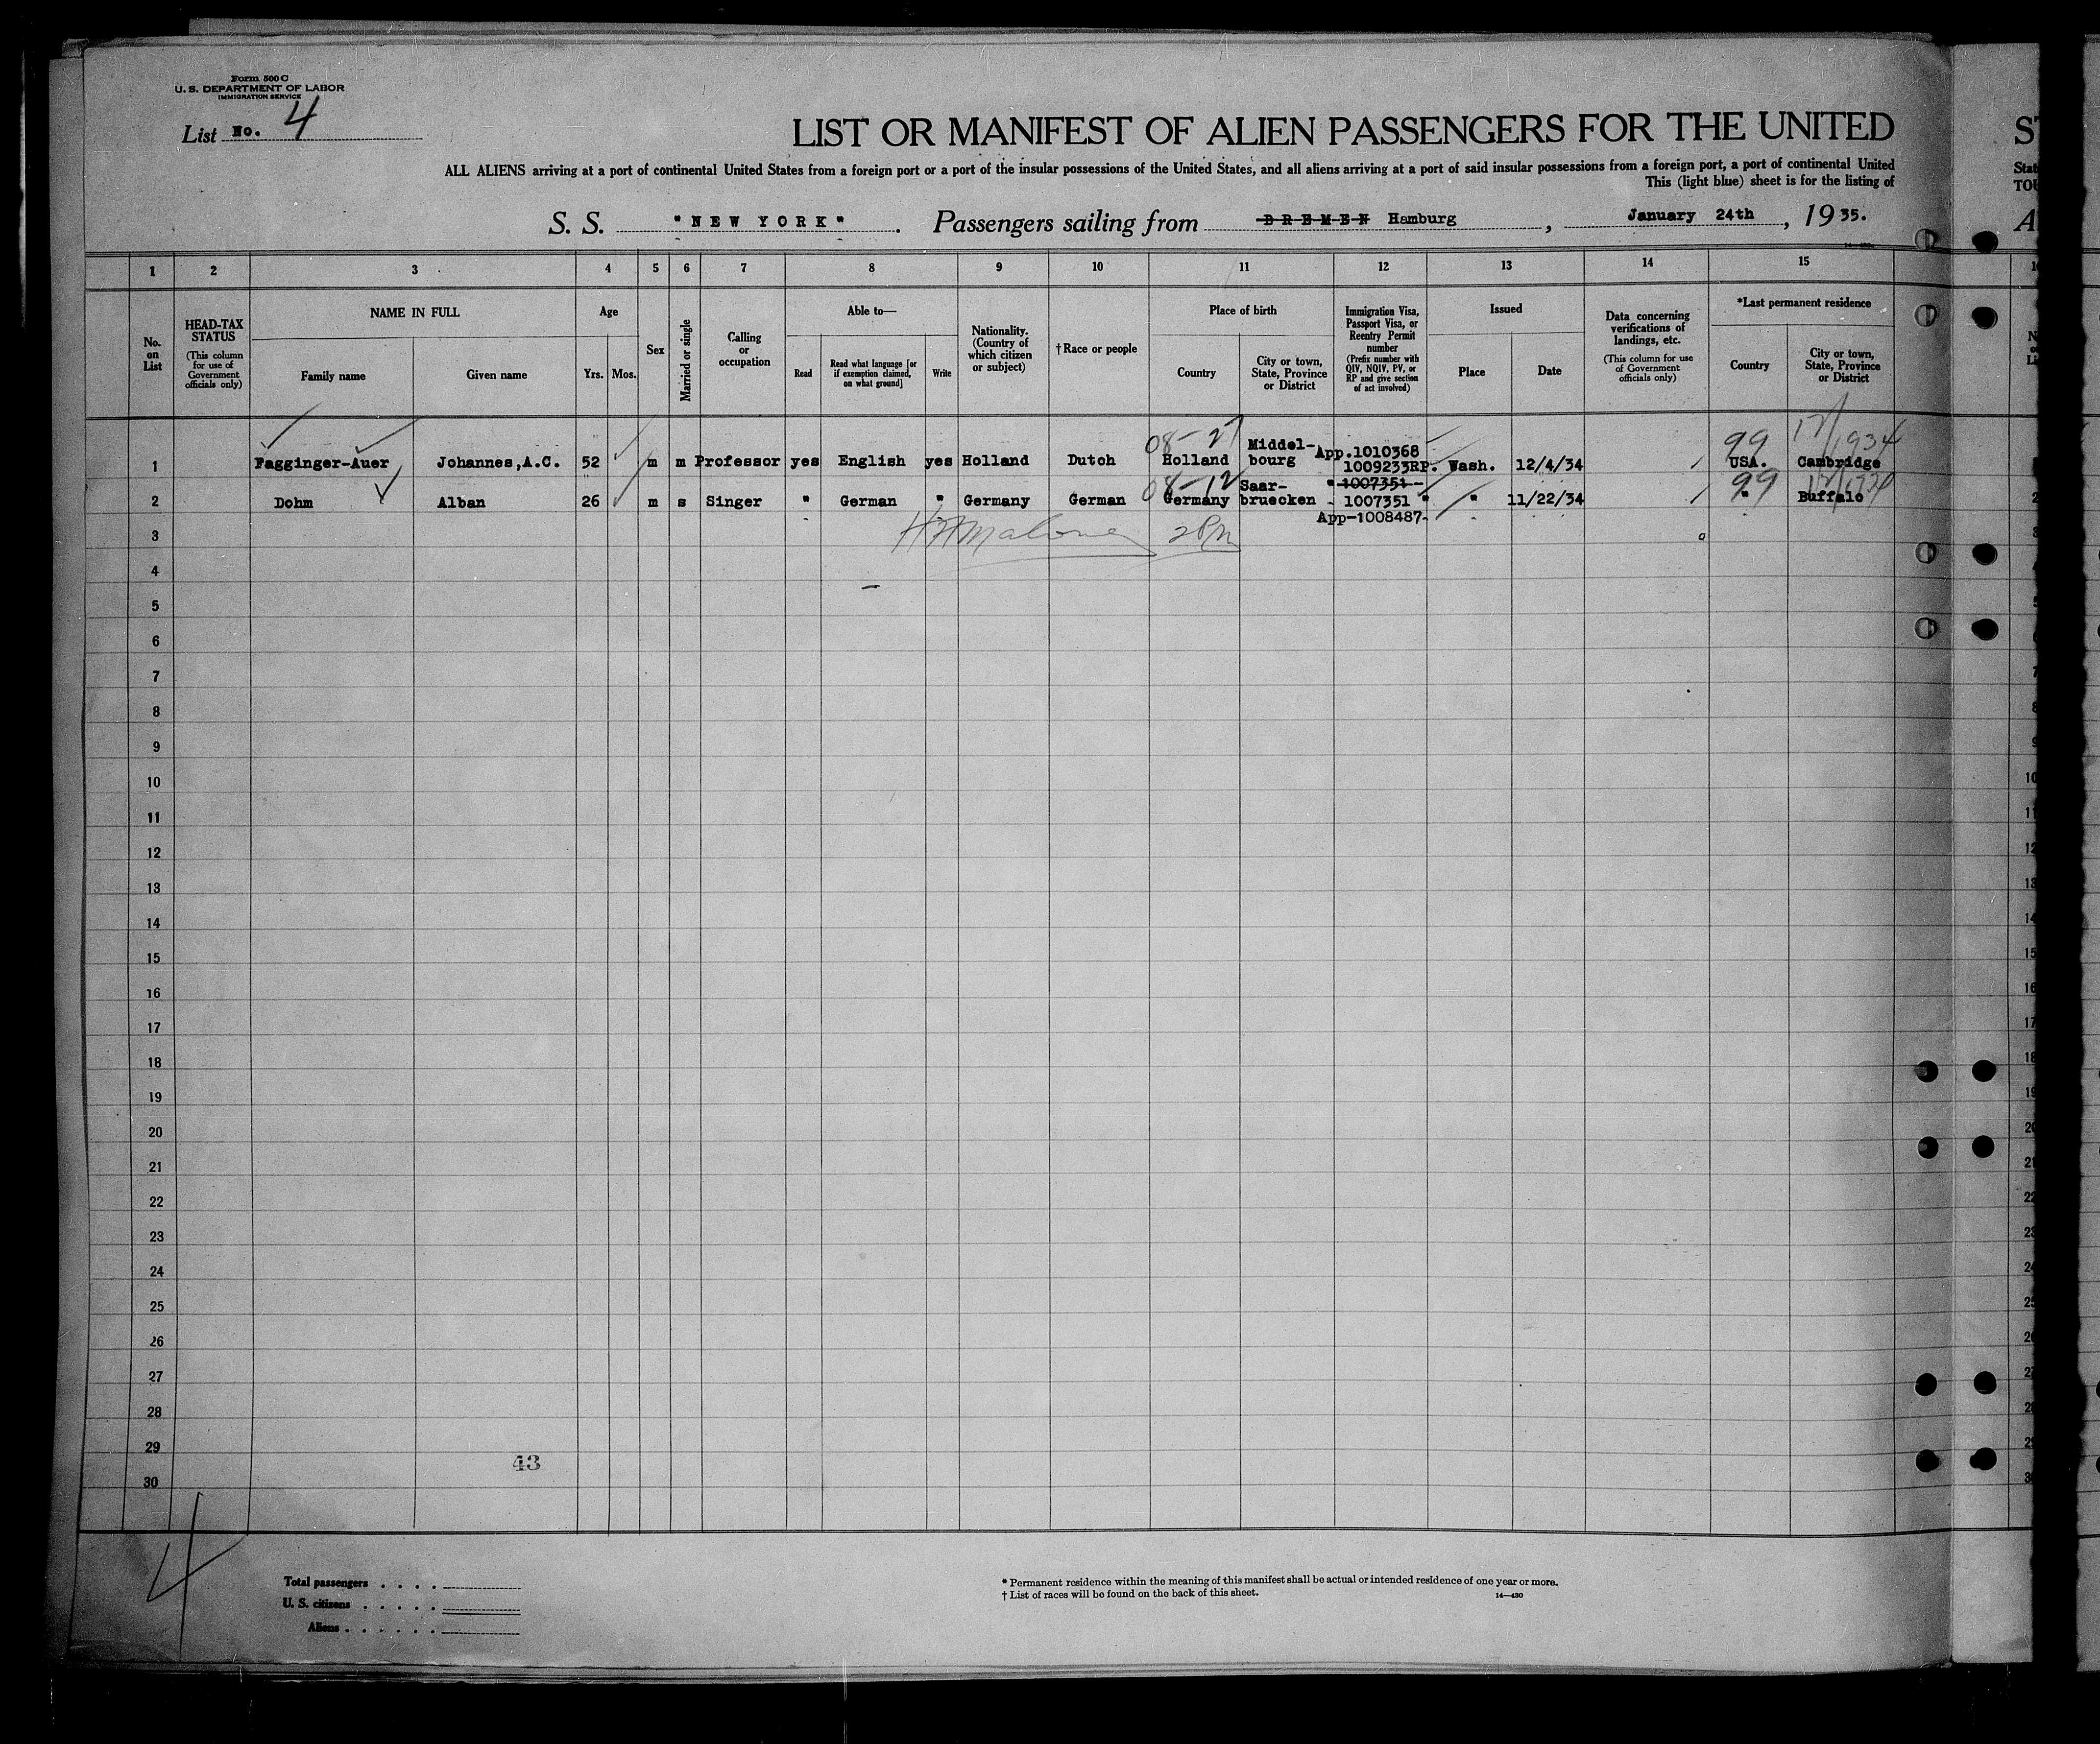 Form 500 C
U. S. DEPARTMENT OF LABOR
IMMIGRATION SERVICE
List No. 4
LIST OR MANIFEST OF ALIEN PASSENGERS FOR THE UNITED
ALL ALIENS arriving at a port of continental United States from a foreign port or a port of the insular possessions of the United States, and all aliens arriving at a port of said insular possessions from a foreign port, a port of continental United
This (light blue) sheet is for the listing of
S. S. "NEW YORK". Passengers sailing from BREMEN Hamburg, January 24th, 1935.
1 2 3 4 5 6 7 8 9 10 11 12 13 14 15
No. on List
HEAD-TAX STATUS
(This column for use of Government officials only)
NAME IN FULL
Family name
Given name
Age
Yrs.
Mos.
Sex
Married or single
Calling or occupation
Able to—
Read
Read what language [or if exemption claimed, on what ground]
Write
Nationality. (Country of which citizen or subject)
†Race or people
Place of birth
Country
City or town, State, Province or District
Immigration Visa, Passport Visa, or Reentry Permit number
(Prefix number with QIV, NQIV, PV, or RP and give section of act involved)
Issued
Place
Date
Data concerning verifications of landings, etc.
(This column for use of Government officials only)
*Last permanent residence
Country
City or town, State, Province or District
08-27 Middel- App.1010368 99 17/1934
1 Fagginger-Auer Johannes,A.C. 52 m m Professor yes English yes Holland Dutch Holland bourg 1009233RP. Wash. 12/4/34 USA. Cambridge
08-12 Saar- " 1007351 99
2 Dohm Alban 26 m s Singer " German " Germany German Germany bruecken 1007351 " " 11/22/34 " Buffalo
App-1008487-
3 Malone 2Pm
4
5
6
7
8
9
10
11
12
13
14
15
16
17
18
19
20
21
22
23
24
25
26
27
28
29
43
30
4
Total passengers . . . .
U. S. citizens . . . . .
Aliens . . . . . .
* Permanent residence within the meaning of this manifest shall be actual or intended residence of one year or more.
† List of races will be found on the back of this sheet. 14—430